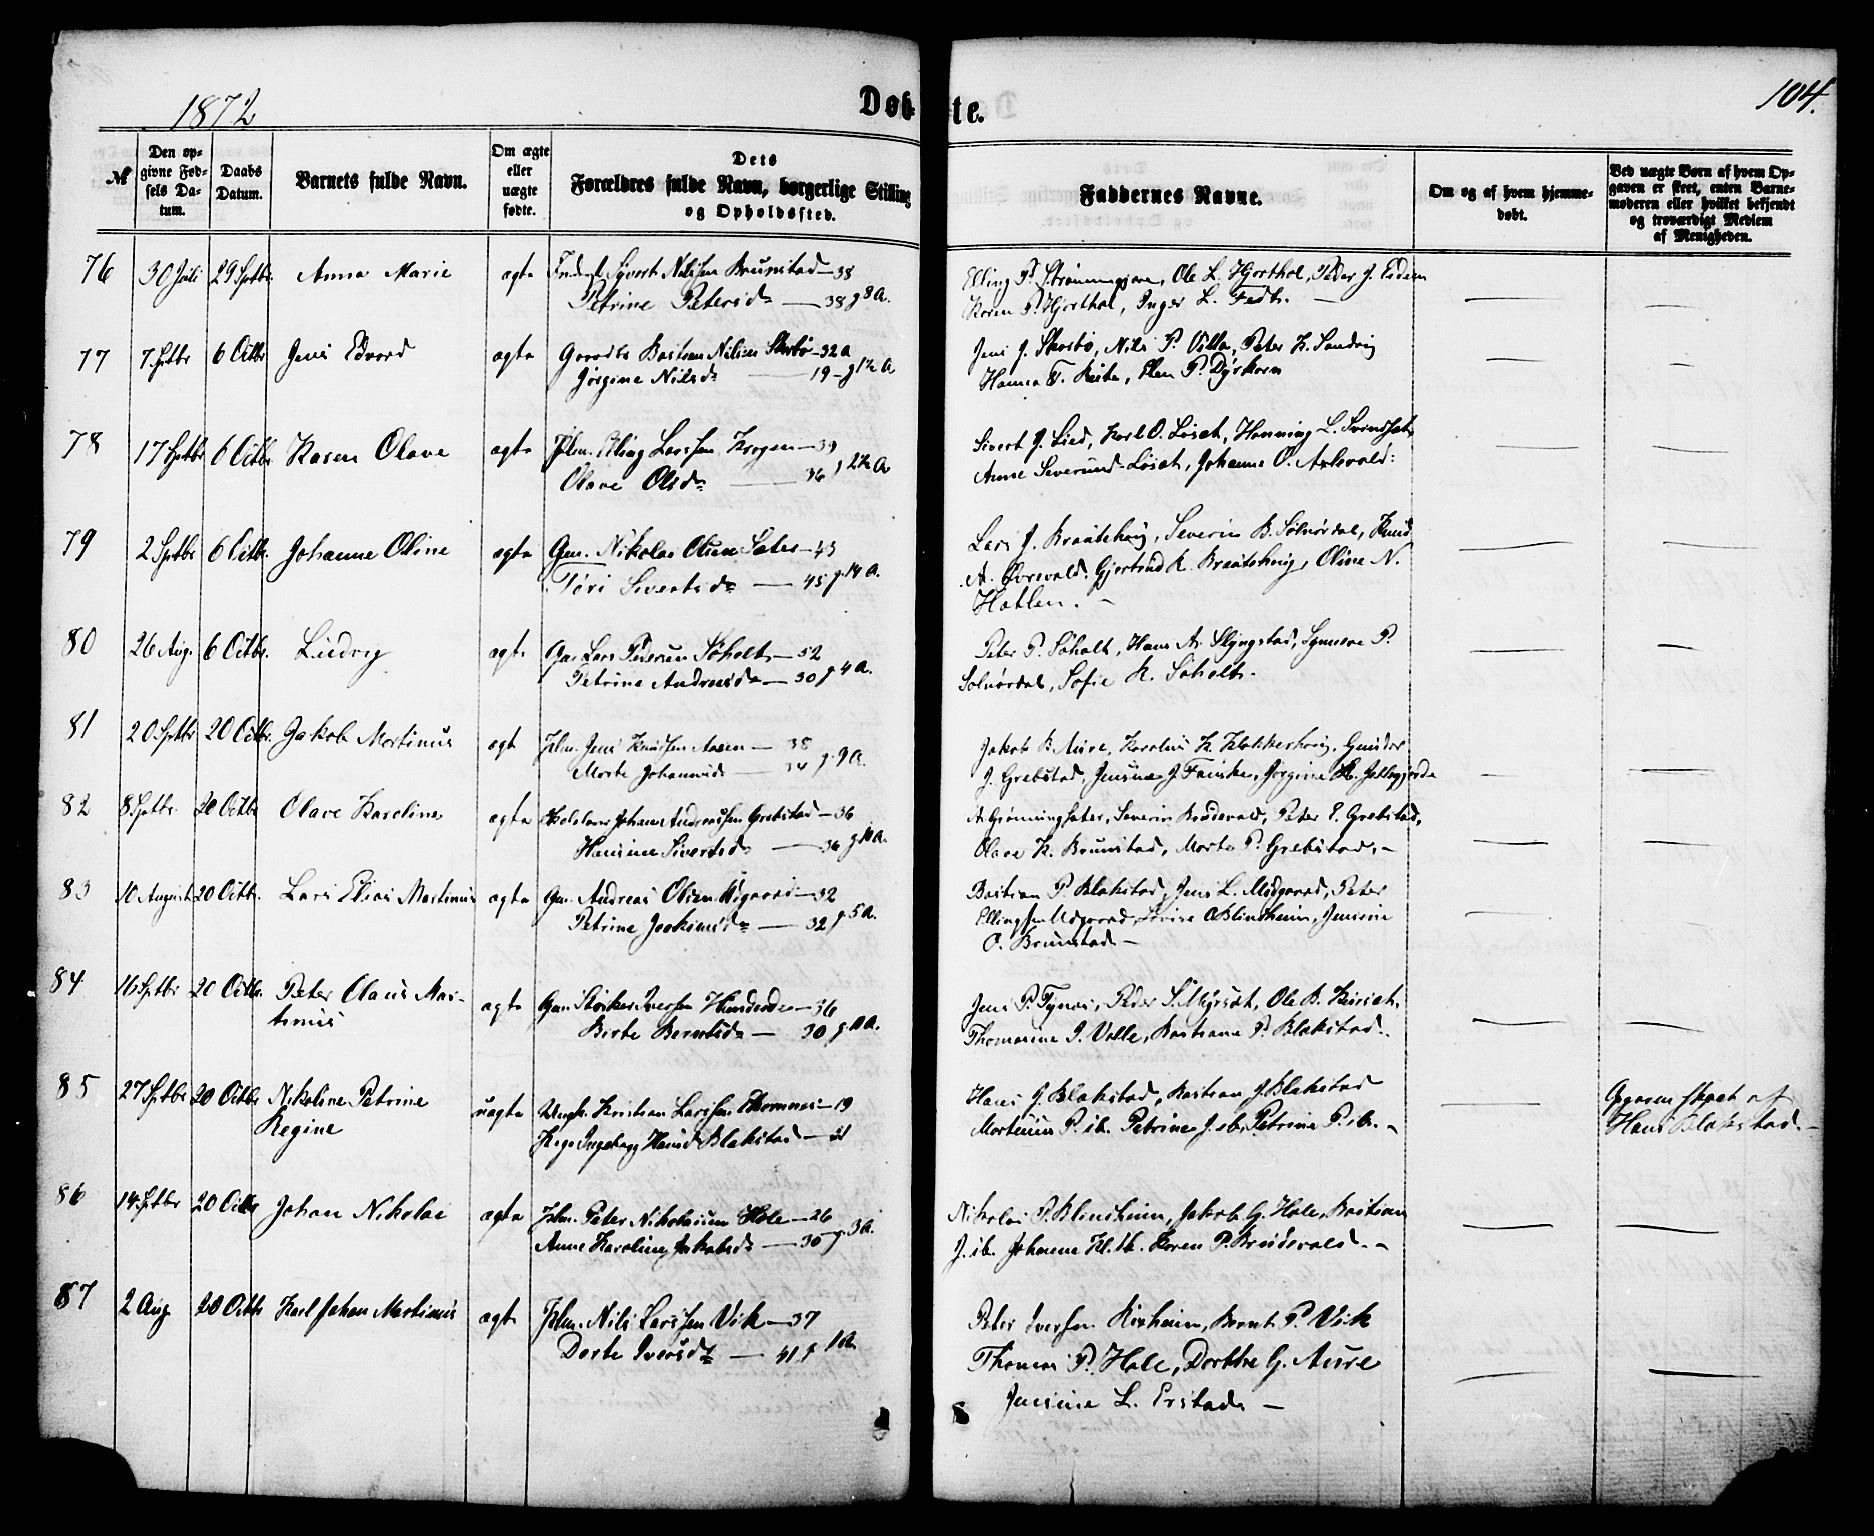 1872
Døbte.
104.
№
Den opgivne Fødsels Datum.
Daabs Datum.
Barnets fulde Navn.
Om ægte eller uægte fødte.
Dets Forældres fulde Navn, borgerlige Stilling og Opholdssted.
Faddernes Navne.
Om og af hvem hjemmedøbt.
Ved uægte Børn af hvem Opgaven er skeet, enten Barnemoderen eller hvilket bekjendt og troværdigt Medlem af Menigheden.
76 30 Juli 29 Sptbr. Anna Marie ægte Sivert Nilsen Brunstad — 38
Petrine Petersd. — 38 g 8 A.
Elling P. Strømmegjære, Ole L. Hjorthol, Peder J.
Karen P. Hjorthol, Inger L. —
77 7 Sptbr 6 Octbr Jens Edvard ægte Bastian Nilsen Skorbø — 32 a
Jørgine Nilsd. — 19 — g 1½ A
Jens J. Skorbø, Nils P. Villa, Peter K. Sandvig
Hanna T. Elen P. Dyrkorn
78 17 Sptbr 6 Octbr Karen Olave ægte Jdm. Larssen Krogen — 39
Olave Olsd. — 36 g 2½ A
Sivert J. Lied, Karl O. Løset, Henning L.
Anne Løset, Johanne O.
79 2 Sptbr 6 Octbr. Johanne Oline ægte Gm. Nikolai Olsen Sæter — 43
Tøri Sivertsd. — 45 g 14 A.
Lars J. Braatehoug, Severin B. Solnørdal, Knud
A. Gjertrud K. Braatehoug, Oline N.
Hatlen. —
80 26 Aug. 6 Octbr. Ludvig ægte Gm. Lars Pedersen Søholt — 52
Petrine Andreasd. — 30 g 4 A.
Peter P. Søholt, Hans A. Slyngstad, Synneve P.
Solnørdal, Sofie K. Søholt.
81 20 Sptbr 20 Octbr. Jakob Martinus ægte Jdm. Jens Knudsen Aasen — 38
Marte Johannesd. — 34 g 9 A.
Jakob B. Aure, Karolus K. Klokkerhoug, Gunder
J. Grebstad, Jensine J. Jørgine
82 8 Sptbr. 20 Octbr Olave Karoline ægte Johan Andreassen Grebstad — 36
Hansine Sivertsd. — 36 g 10 A.
A. Grønningsæter, Severin Brudevold, Peter P. Grebstad,
Olave K. Brunstad, Marte P. Grebstad. —
83 10 August 20 Octbr. Lars Elias Martinus ægte Gm. Andreas Olsen — 32
Petrine Joakimsd. — 32 g 5 A.
Bastian P. Blakstad, Jens L. Midgaard, Peter
Ellingsen Lovise O. Blindheim, Jensine
O. Brunstad. —
84 16 Sptbr 20 Octbr. Peter Olaus Mar-
tinus ægte Gm. Iversen — 36
Berte Berntsd. — 30 g 10 A.
Jens P. Tynes, Peder S. Myrset, Ole B.
Thomasine I. Valle, Bastiane P. Blakstad.
85 27 Sptbr 20 Octbr Nikoline Petrine
Regine uægte Ungk. Kristian Larssen — 19
Ingeborg Hansd. Blakstad — 21
Hans J. Blakstad, Bastian J. Blakstad
P. ib. Petrine J. ib. Petrine P. ib. —
Opgaven skeet af
Hans Blakstad. —
86 14 Sptbr 20 Octbr Johan Nikolai ægte Jdm. Peter Nikolaisen Hole — 26
Anne Karoline Jakobsd. — 30 g 3 A.
Nikolai P. Blindheim, Jakob G. Hole, Bastian
J. ib. Johanne Kl. ib. Karen P. Brudevold. —
87 2 Aug 20 Octbr Karl Johan Martinus ægte Jdm. Nils Larssen Vik — 37
Dorte Iversd. — 41 g 10 A.
Peter Iversen Bernt P. Vik
Thomas P. Hole, Dorthe G. Aure
Jensine L. Erstad. —